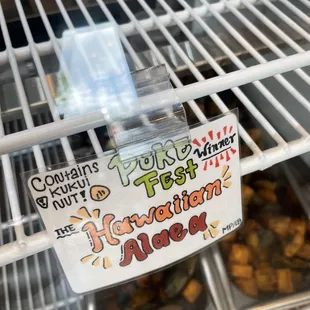 Contains
KUKUI
NUT!
POKE
FesT
WiNNER
THE
Hawaiian
Alaea